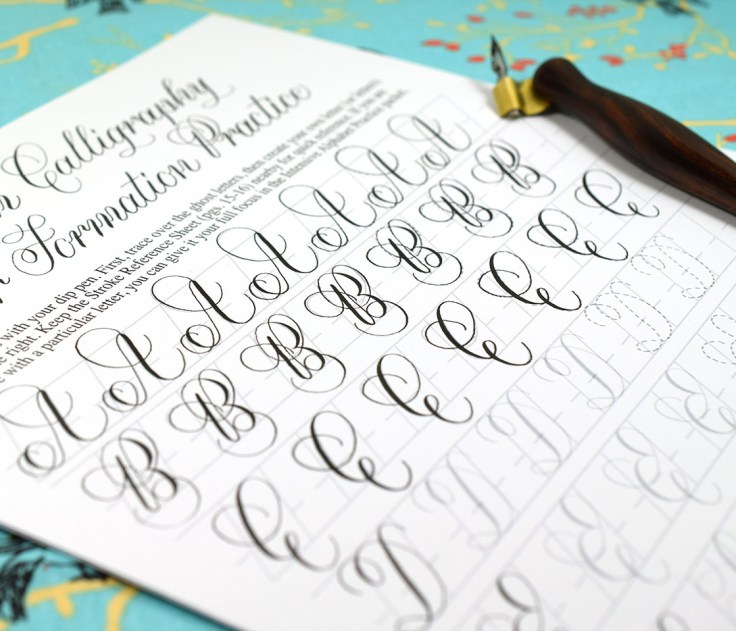 Calligraphy
Formation Practice
with your dip pen. First, trace over the ghost letters, then create your own letter (or letters)
right. Keep the Stroke Reference Sheet (pgs. 15-16) nearby for quick reference. If you are
with a particular letter, you can give it your full focus in the Intensive Alphabet Practice packet.
A A A A A A A
B B B B B B B
C C C C C C C
D D D D D D
E E E E